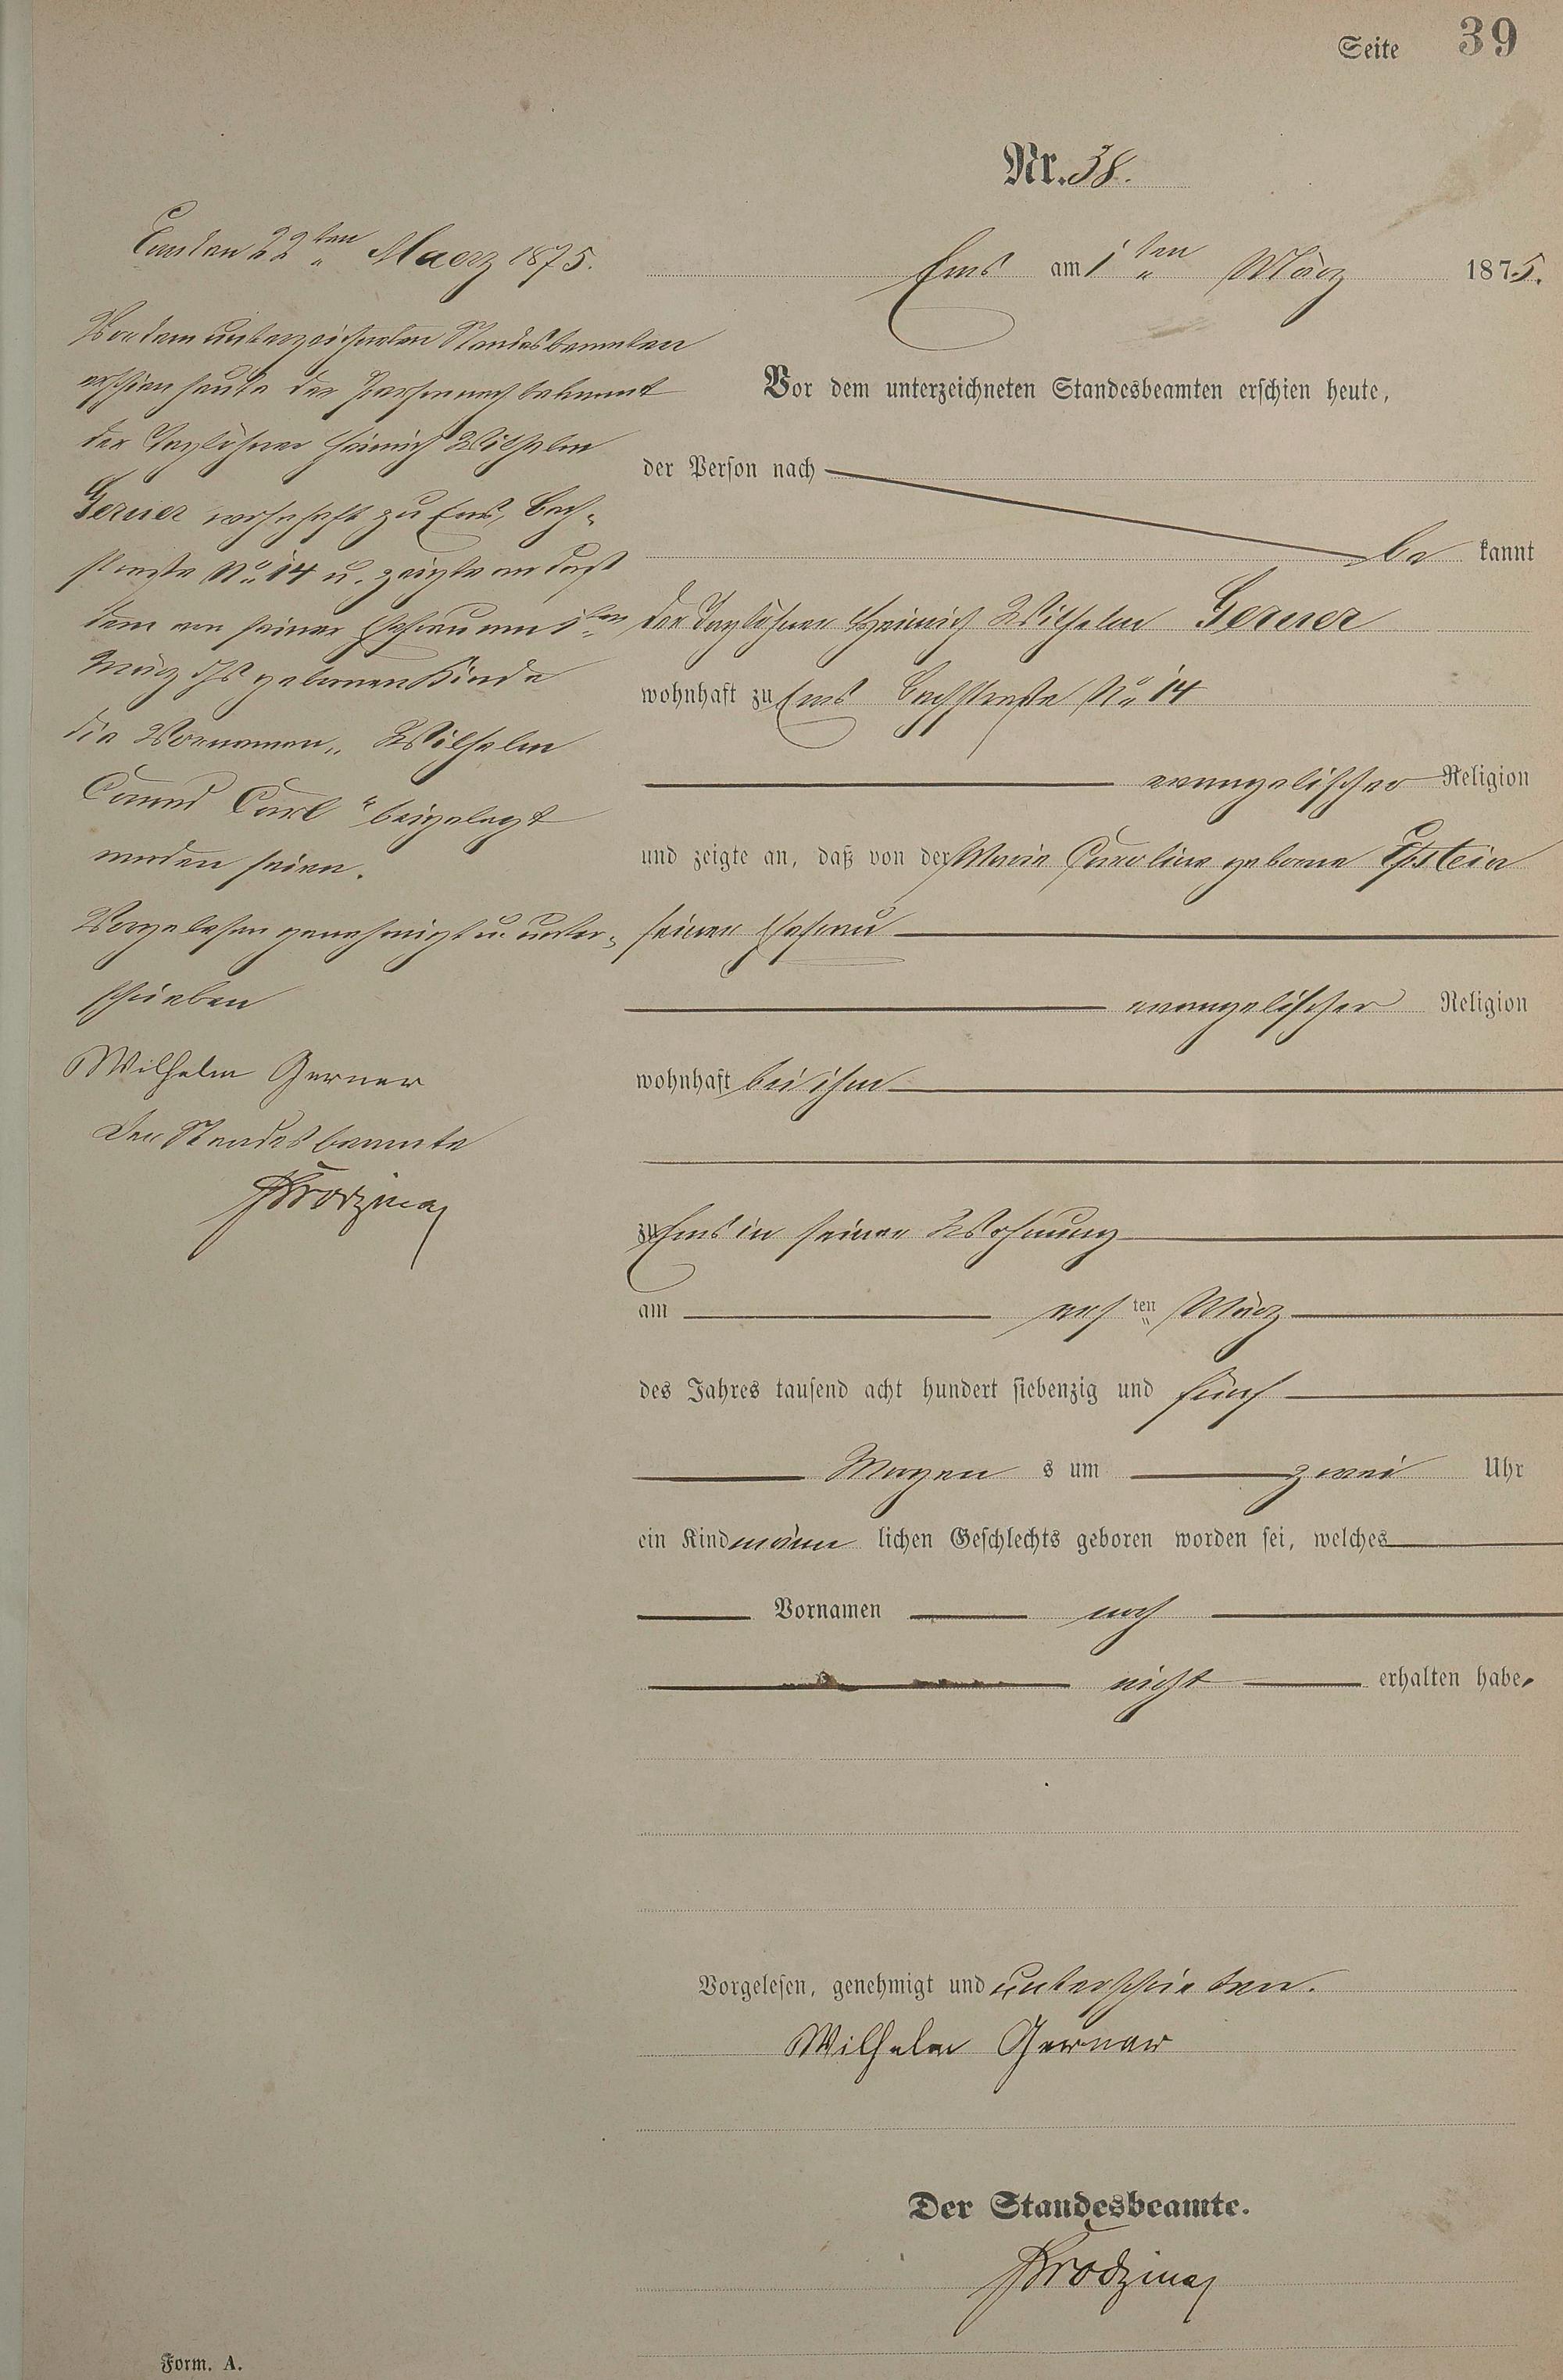 Seite 39
Nr. 38.
Ems am 1ten März 1875.
Vor dem unterzeichneten Standesbeamten erschien heute,
der Person nach
be kannt
der Taglöhner Heinrich Wilhelm Gerner
wohnhaft zu Ems Bachstraße No 14
evangelischer Religion
und zeigte an, daß von der Marie Caroline geborne Epstein
seiner Ehefrau
evangelischer Religion
wohnhaft bei ihm
zu Ems in seiner Wohnung
am ersten März
des Jahres tausend acht hundert siebenzig und fünf
Morgen s um zwei Uhr
ein Kind männ lichen Geschlechts geboren worden sei, welches
Vornamen noch
nicht erhalten habe.
Vorgelesen, genehmigt und unterschrieben.
Wilhelm Gerner
Der Standesbeamte.
Ems den 22ten Maerz 1875.
Vor dem unterzeichneten Standesbeamten
erschien heute der Person nach bekannt
der Taglöhner Heinrich Wilhelm
Gerner wohnhaft zu Ems, Bach-
straße No 14 u. zeigte an daß
dem von seiner Ehefrau am 1ten
März gebornen Kinde
die Vornamen „Wilhelm
Carl“ beigelegt
worden seien.
Vorgelesen genehmigt u. unter-
schrieben
Wilhelm Gerner
Der Standesbeamte
Form. A.